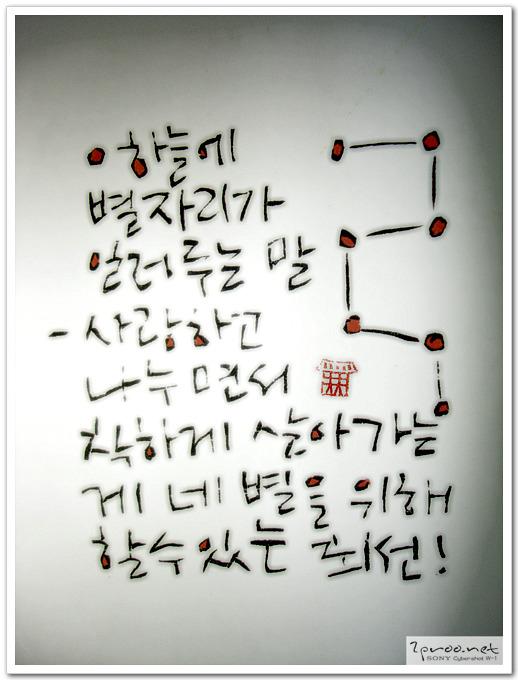 하늘에
별자리가
일러두는 말
- 사랑하고
나누면서
착하게 살아가는
게 네 별을 위해
할수있는 최선!
2proo.net
SONY Cybershot W-1